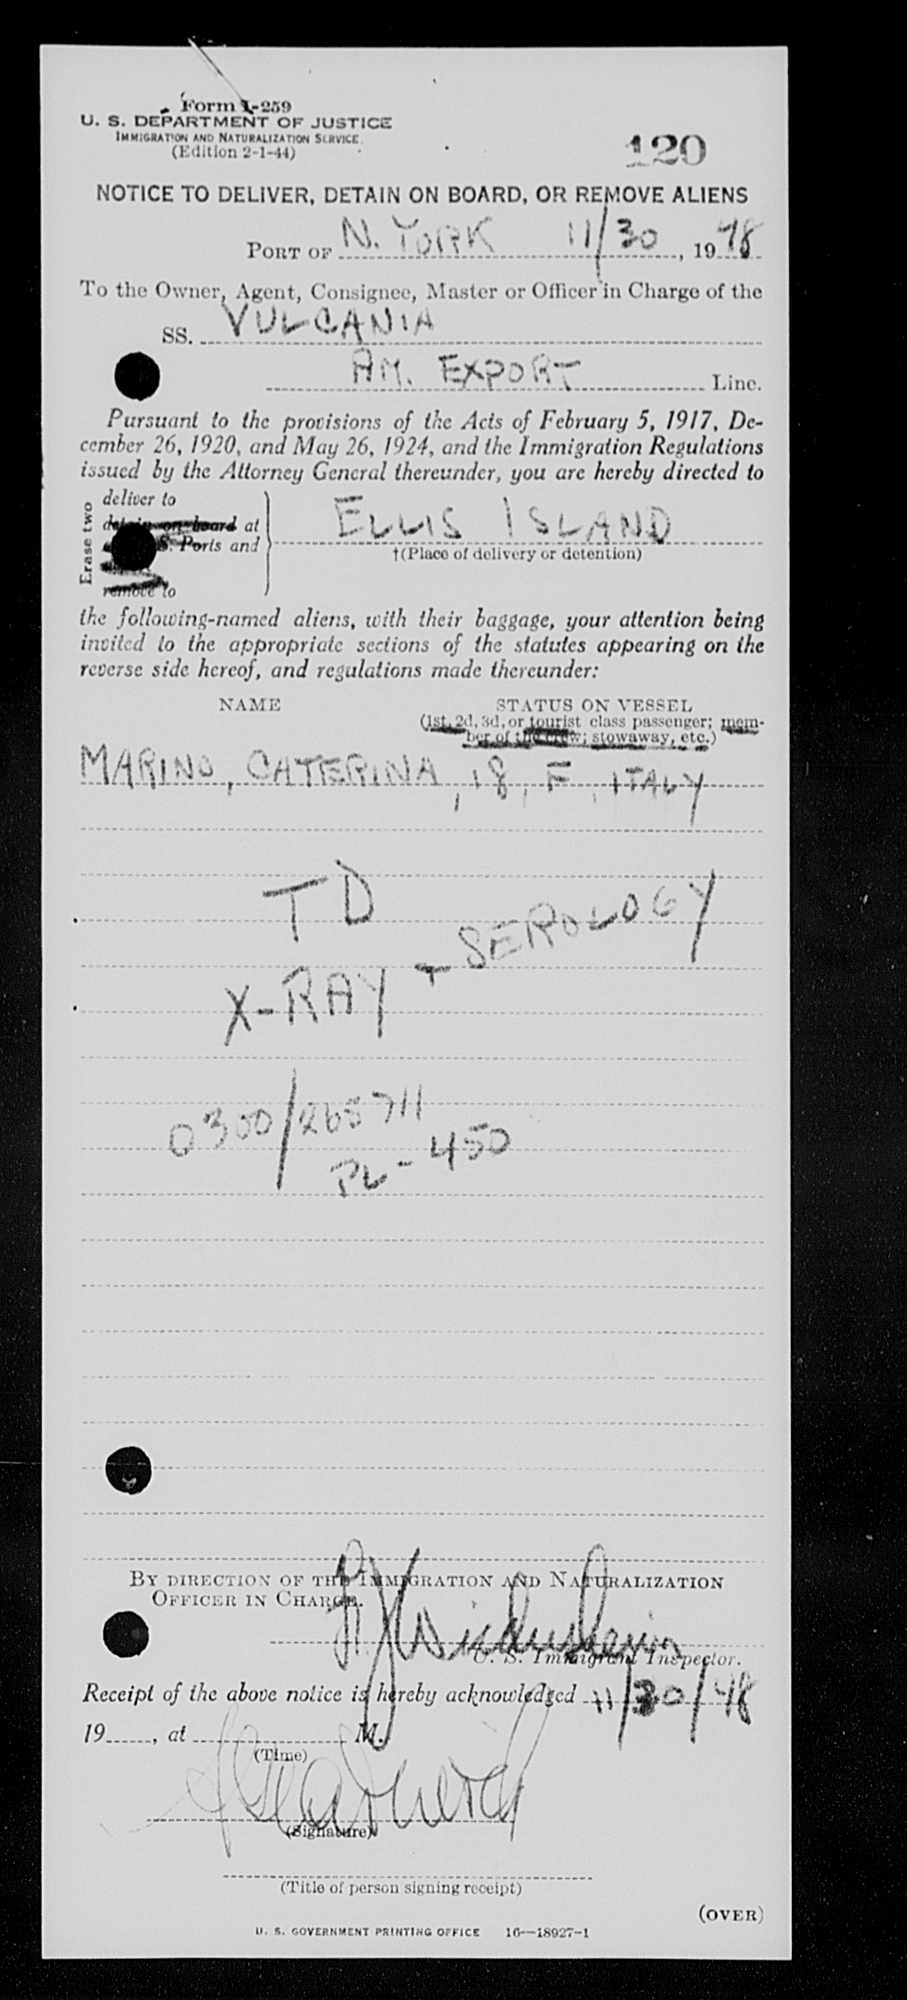 Form I-259
U. S. DEPARTMENT OF JUSTICE
IMMIGRATION AND NATURALIZATION SERVICE
(Edition 2-1-44)
120
NOTICE TO DELIVER, DETAIN ON BOARD, OR REMOVE ALIENS
PORT OF N. YORK 11/30, 1948
To the Owner, Agent, Consignee, Master or Officer in Charge of the
SS. VULCANIA
AM. EXPORT Line.
Pursuant to the provisions of the Acts of February 5, 1917, De-
cember 26, 1920, and May 26, 1924, and the Immigration Regulations
issued by the Attorney General thereunder, you are hereby directed to
Erase two
deliver to
detain on board at
S. Ports and
remove to
ELLIS ISLAND
†(Place of delivery or detention)
the following-named aliens, with their baggage, your attention being
invited to the appropriate sections of the statutes appearing on the
reverse side hereof, and regulations made thereunder:
NAME STATUS ON VESSEL
(1st, 2d, 3d, or tourist class passenger; mem-
ber of the crew; stowaway, etc.)
MARINO, CATERINA, 18, F, ITALY
TD
X-RAY + SEROLOGY
0300/265711
PL-450
BY DIRECTION OF THE IMMIGRATION AND NATURALIZATION
OFFICER IN CHARGE.
U. S. Immigrant Inspector.
Receipt of the above notice is hereby acknowledged 11/30/48
19......, at M.
(Time)
(Signature)
(Title of person signing receipt)
(OVER)
U. S. GOVERNMENT PRINTING OFFICE 16—18927-1